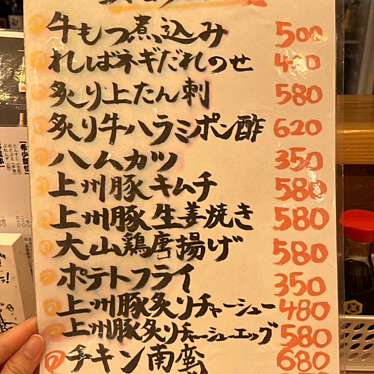 牛もつ煮込み 500
ればネギだれのせ 480
炙り上たん刺 580
炙り牛ハラミポン酢 620
ハムカツ 350
上州豚キムチ 580
上州豚生姜焼き 580
大山鶏唐揚げ 580
ポテトフライ 350
上州豚炙りチャーシュー 480
上州豚炙りチャーシューエッグ 580
チキン南蛮 680